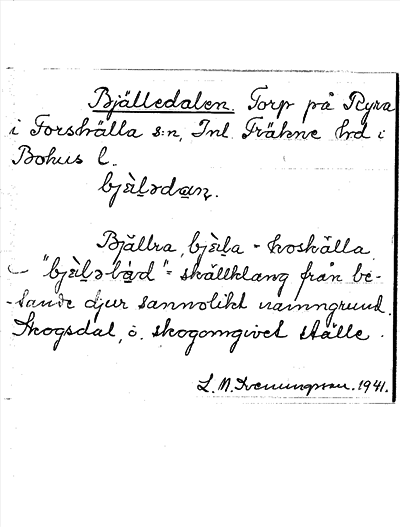 Bjälledalen. Torp på Ryra
i Forshälla s:n, Inl. Fräkne hd i
Bohus l.
bjɛ̀ḷədaṇ.
Bjällra, bjɛ̀ḷa - koskälla
"bjɛ̀ḷəba̤d" = skällklang från be-
tande djur sannolikt namngrund.
Skogsdal, o. skogomgivet ställe.
L. N. Kvenungsson. 1941.